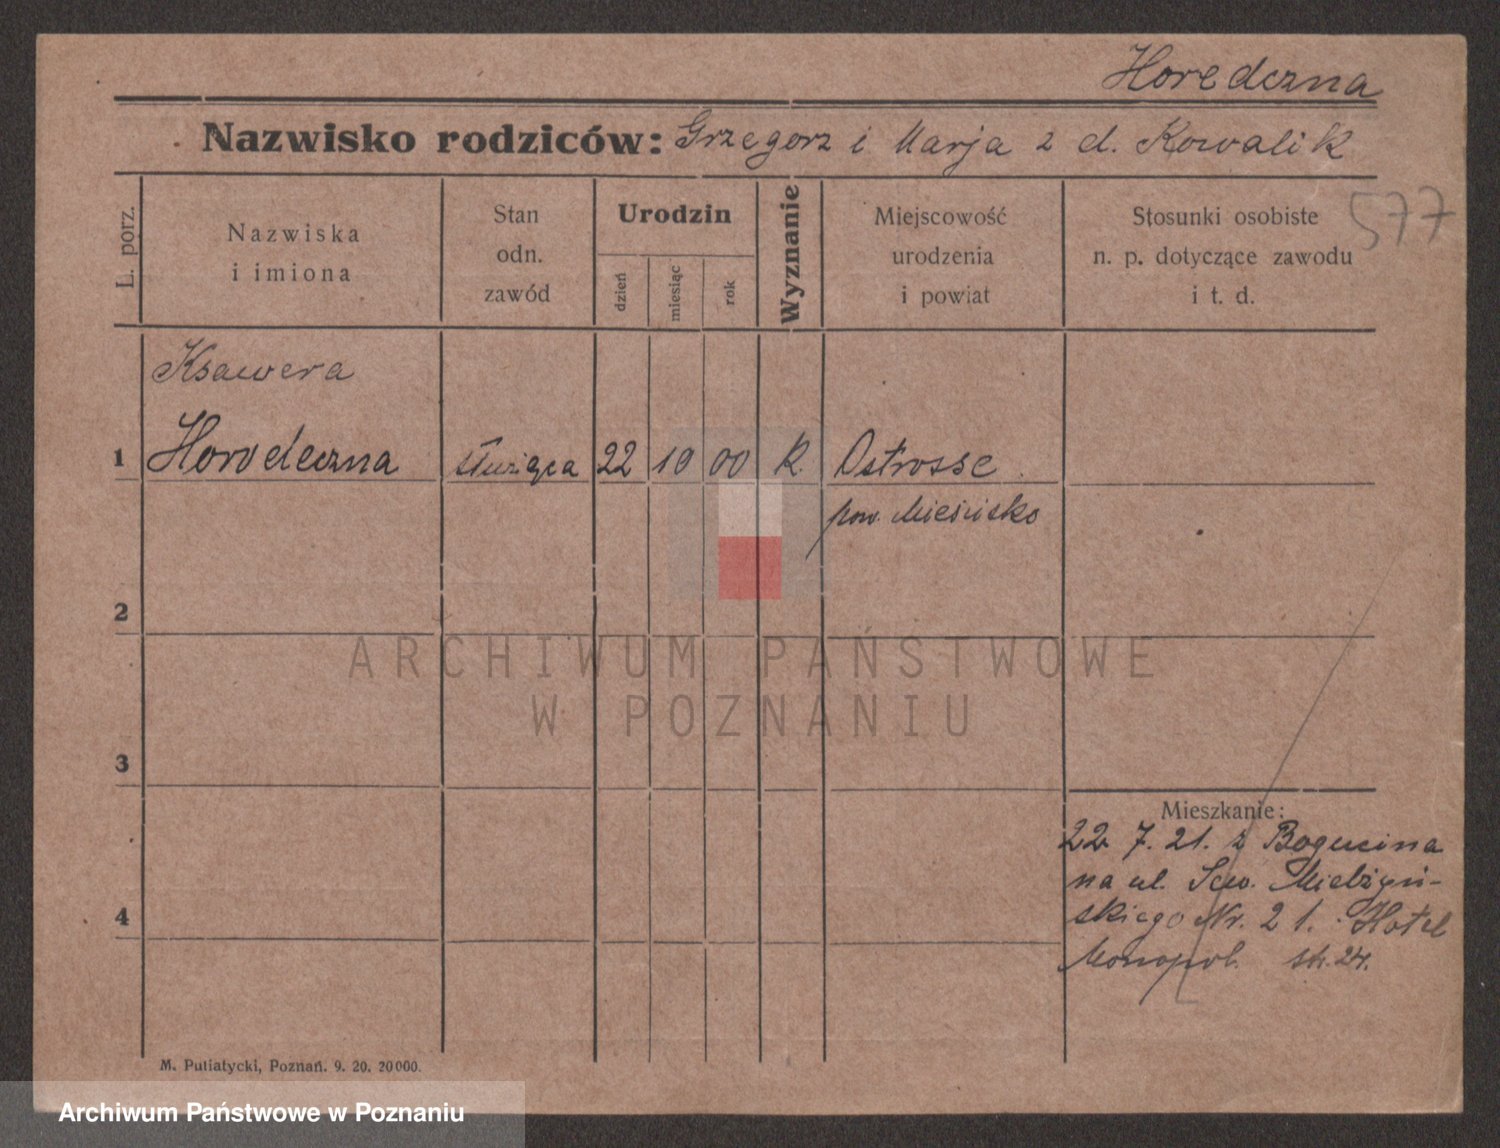 Horedczna
Nazwisko rodziców: Grzegorz i Marja z d. Kowalik
577
L. porz.
Nazwiska
i imiona
Stan
odn.
zawód
Urodzin
dzień
miesiąc
rok
Wyznanie
Miejscowość
urodzenia
i powiat
Stosunki osobiste
n. p. dotyczące zawodu
i t. d.
Ksawera
1 Horodeczna służąca 22 10 00 K. Ostrosse
pow. Mieścisko
2
3
4
Mieszkanie:
22. 7. 21. z Bogucina
na ul. Sew. Mielżyń-
skiego Nr. 21. Hotel
Monopol.
M. Putiatycki, Poznań. 9. 20. 20000.
ARCHIWUM PAŃSTWOWE
W POZNANIU
Archiwum Państwowe w Poznaniu